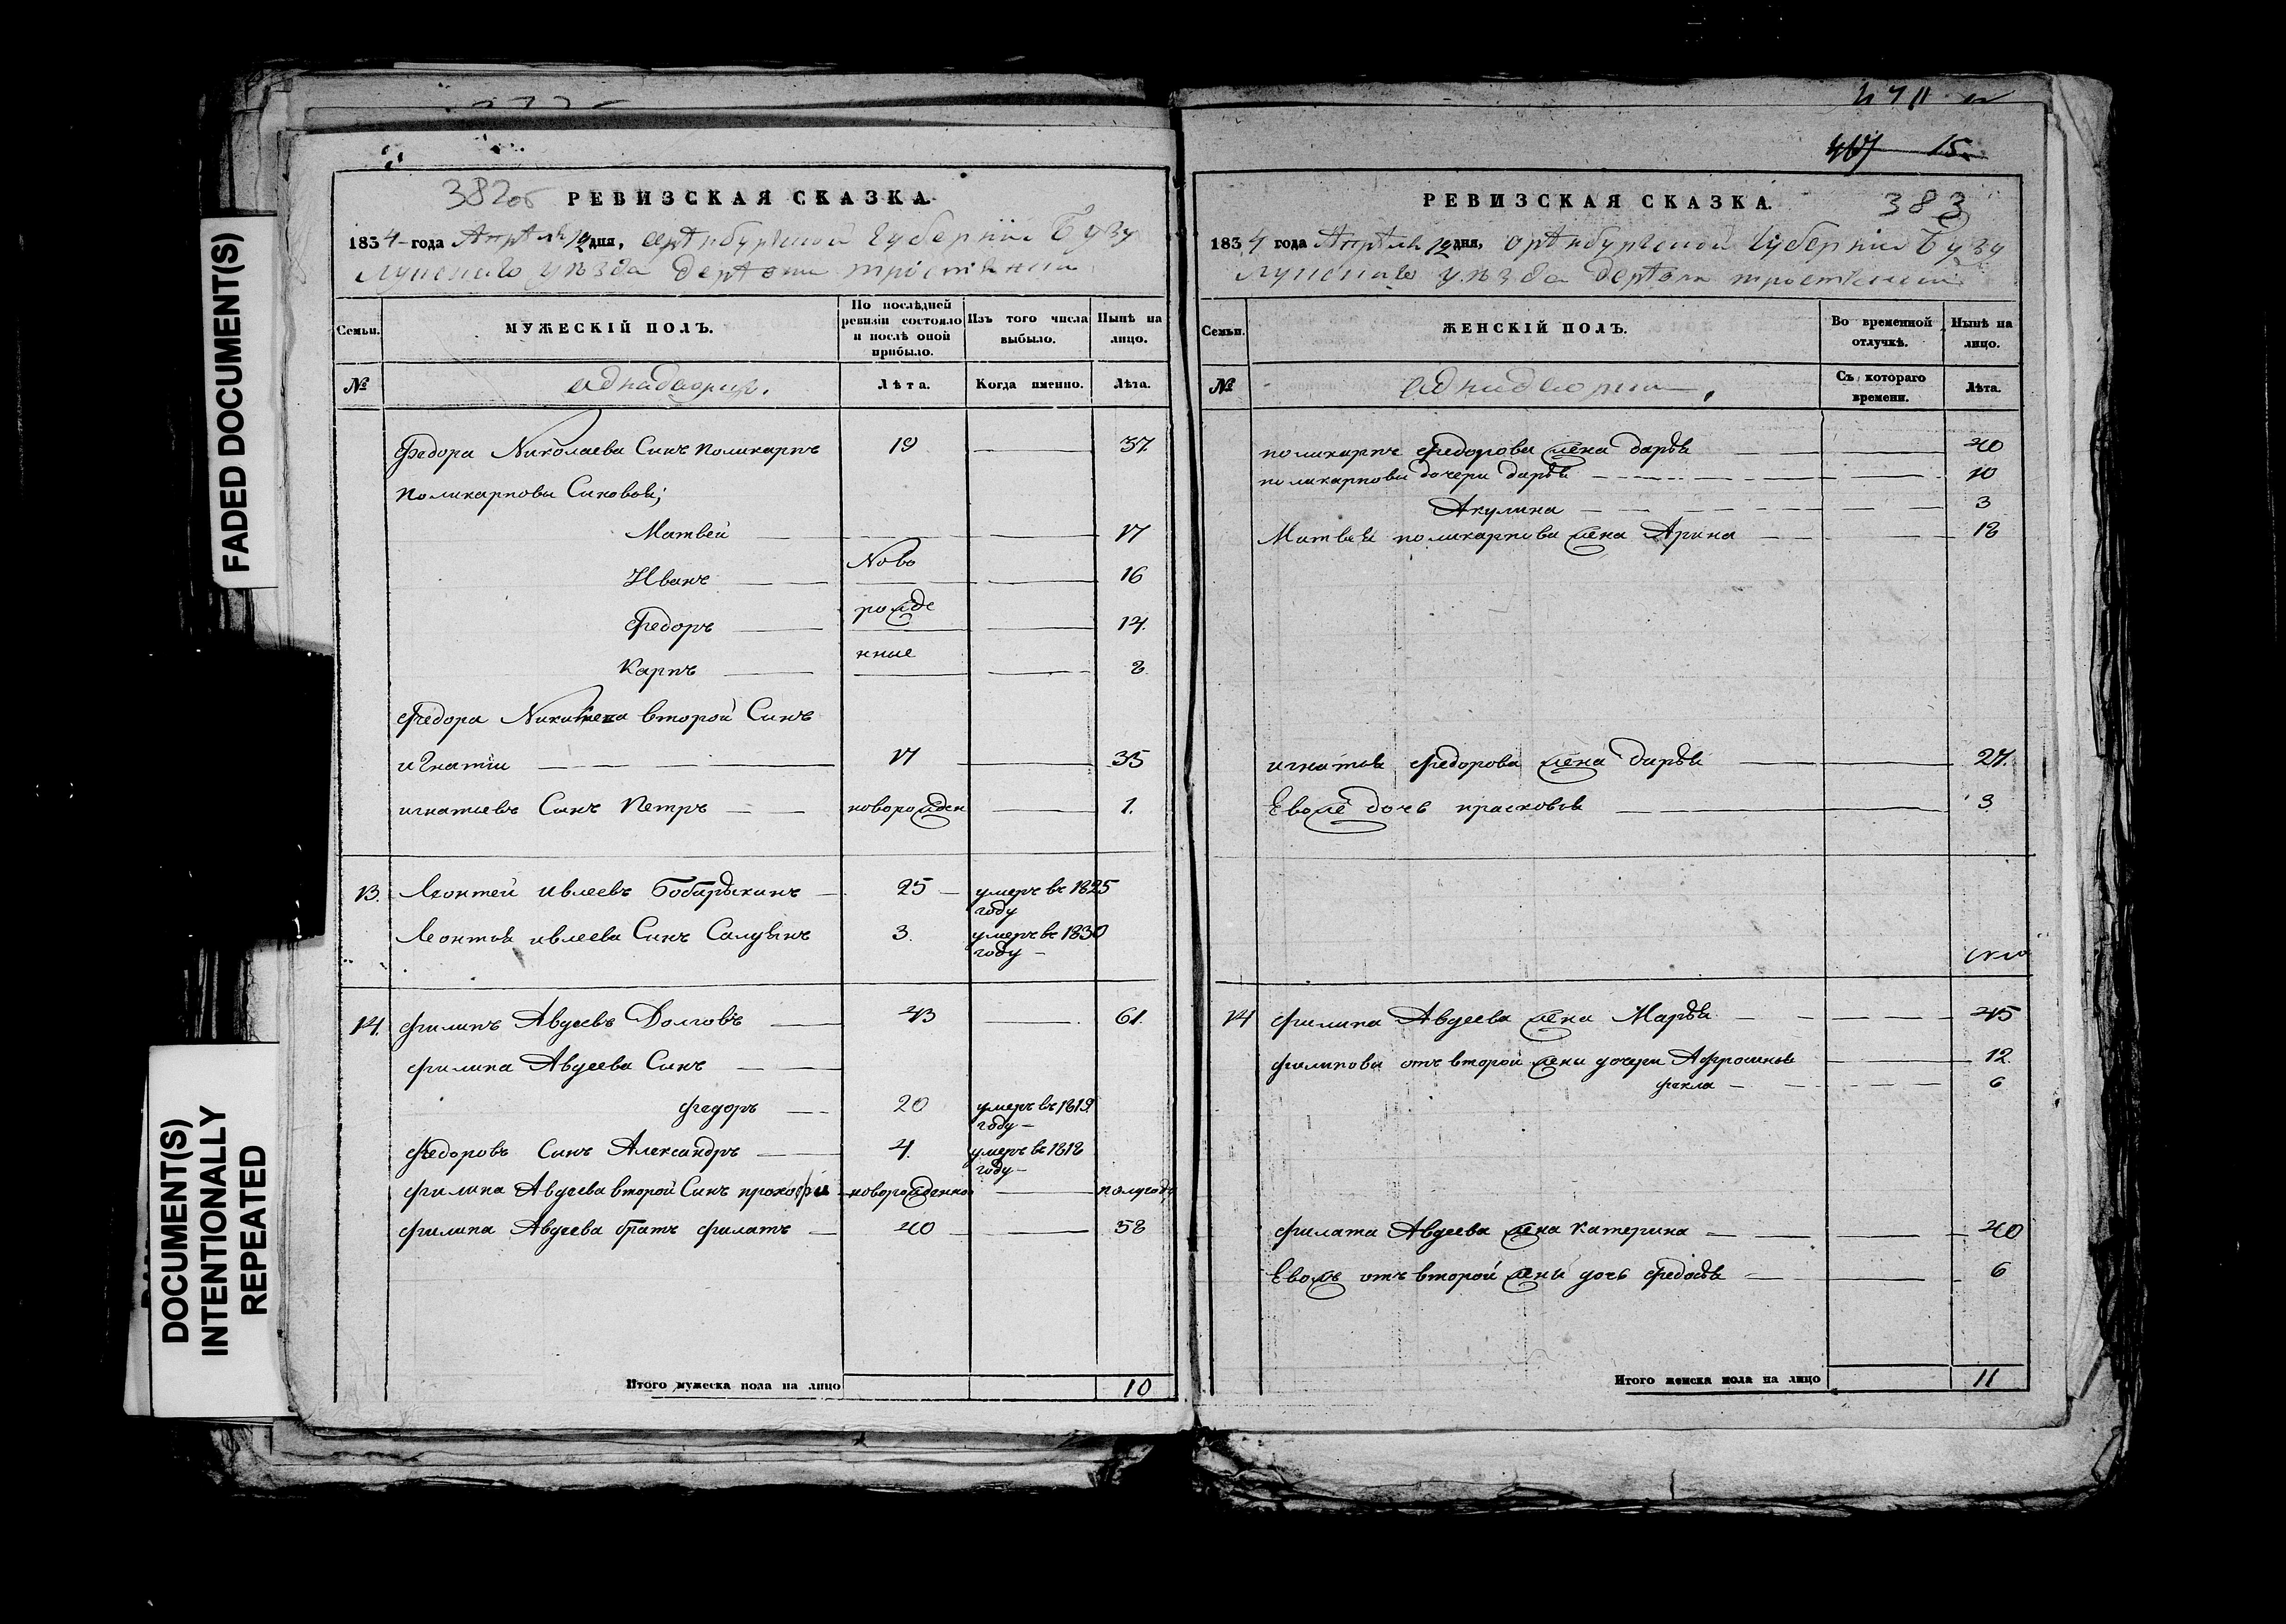 FADED DOCUMENT(S)
DOCUMENT(S)
INTENTIONALLY
REPEATED
382об РЕВИЗСКАЯ СКАЗКА.
1834 года Апреля 12 дня, Оренбургской Губернии Бузу
лускаго уезда деревни тростянки
Семьи. МУЖЕСКІЙ ПОЛЪ. По послѣдней ревизіи состояло и послѣ оной прибыло. Изъ того числа выбыло. Нынѣ на лицо.
№ аднадворцы. Лѣта. Когда именно. Лѣта.
Федора Николаева Синъ поликарпъ 19 37
поликарповы Синовьи;
Матвей 17
Иванъ Ново 16
Федоръ рожде 14
Карпъ нные 8
Федора второй Синъ
игнатии 17 35
игнатьевъ Синъ Петръ новорожден 1.
13. Леонтей ивлеевъ Бобарыкинъ 25 умеръ въ 1825
году
Леонтья ивлева Синъ 3. умеръ въ 1830
году
14. филипъ Авдеевъ Долговъ 43 61.
филипа Авдеева Синъ
федоръ 20 умеръ въ 1819
году
Федоровъ Синъ Александръ 4. умеръ въ 1818
году
филипа Авдеева второй Синъ прокофи новорожденно полугода
филипа Авдеева братъ филатъ 40 58
Итого мужеска пола на лицо 10
15
383
РЕВИЗСКАЯ СКАЗКА.
1834 года Апреля 12 дня, Оренбургской Губернии Бузу
лускаго уезда деревни тростянки
Семьи. ЖЕНСКІЙ ПОЛЪ. Во временной отлучкѣ. Нынѣ на лицо.
№ аднадворки, Съ котораго времени. Лѣта.
поликарпа федорова жена дарья 40
поликарповы дочери дарья 10
Акулина 3
Матвея поликарпова жена Арина 18
игнатья федорова жена дарья 27.
Евоже дочь прасковья 3
14 филипа Авдеева жена Марья 45
филиповы отъ второй жены дочери Афросинья 12.
фекла 6
филата Авдеева жена катерина 40
Евожъ отъ второй жены дочь федосья 6
Итого женска пола на лицо 11